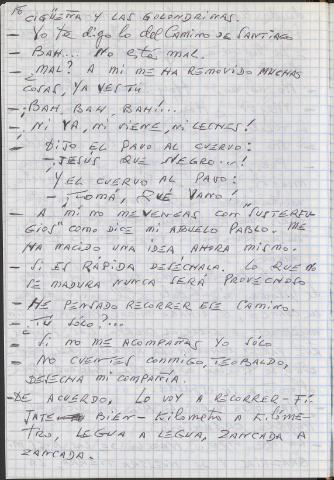 16
CIGÜEÑA Y LAS GOLONDRINAS.
- YO TE DIGO LO DEL CAMINO DE SANTIAGO
- BAH... NO ESTÁ MAL.
- ¿MAL? A MI ME HA REMOVIDO MUCHAS
COSAS, YA VES TÚ
- ¡BAH, BAH, BAH!...
- ¡NI VA, NI VIENE, NI LECHES!
- DIJO EL PAVO AL CUERVO:
- ¡JESÚS QUE NEGRO...!
Y EL CUERVO AL PAVO:
- ¡TOMA, QUÉ VANO!
- A MI NO ME VENGAS CON "SUSTERFU-
GIOS" COMO DICE MI ABUELO PABLO. ME
HA NACIDO UNA IDEA AHORA MISMO.
- SI ES RÁPIDA DESÉCHALA. LO QUE NO
SE MADURA NUNCA SERÁ PROVECHOSO
- HE PENSADO RECORRER ESE CAMINO.
- ¿TÚ SÓLO?...
- SI NO ME ACOMPAÑAS YO SÓLO
- NO CUENTES CONMIGO, TEOBALDO,
DESECHA MI COMPAÑÍA.
- DE ACUERDO, LO VOY A RECORRER - FÍ-
JATE BIEN - KILOMETRO A KILÓME-
TRO, LEGUA A LEGUA, ZANCADA A
ZANCADA.